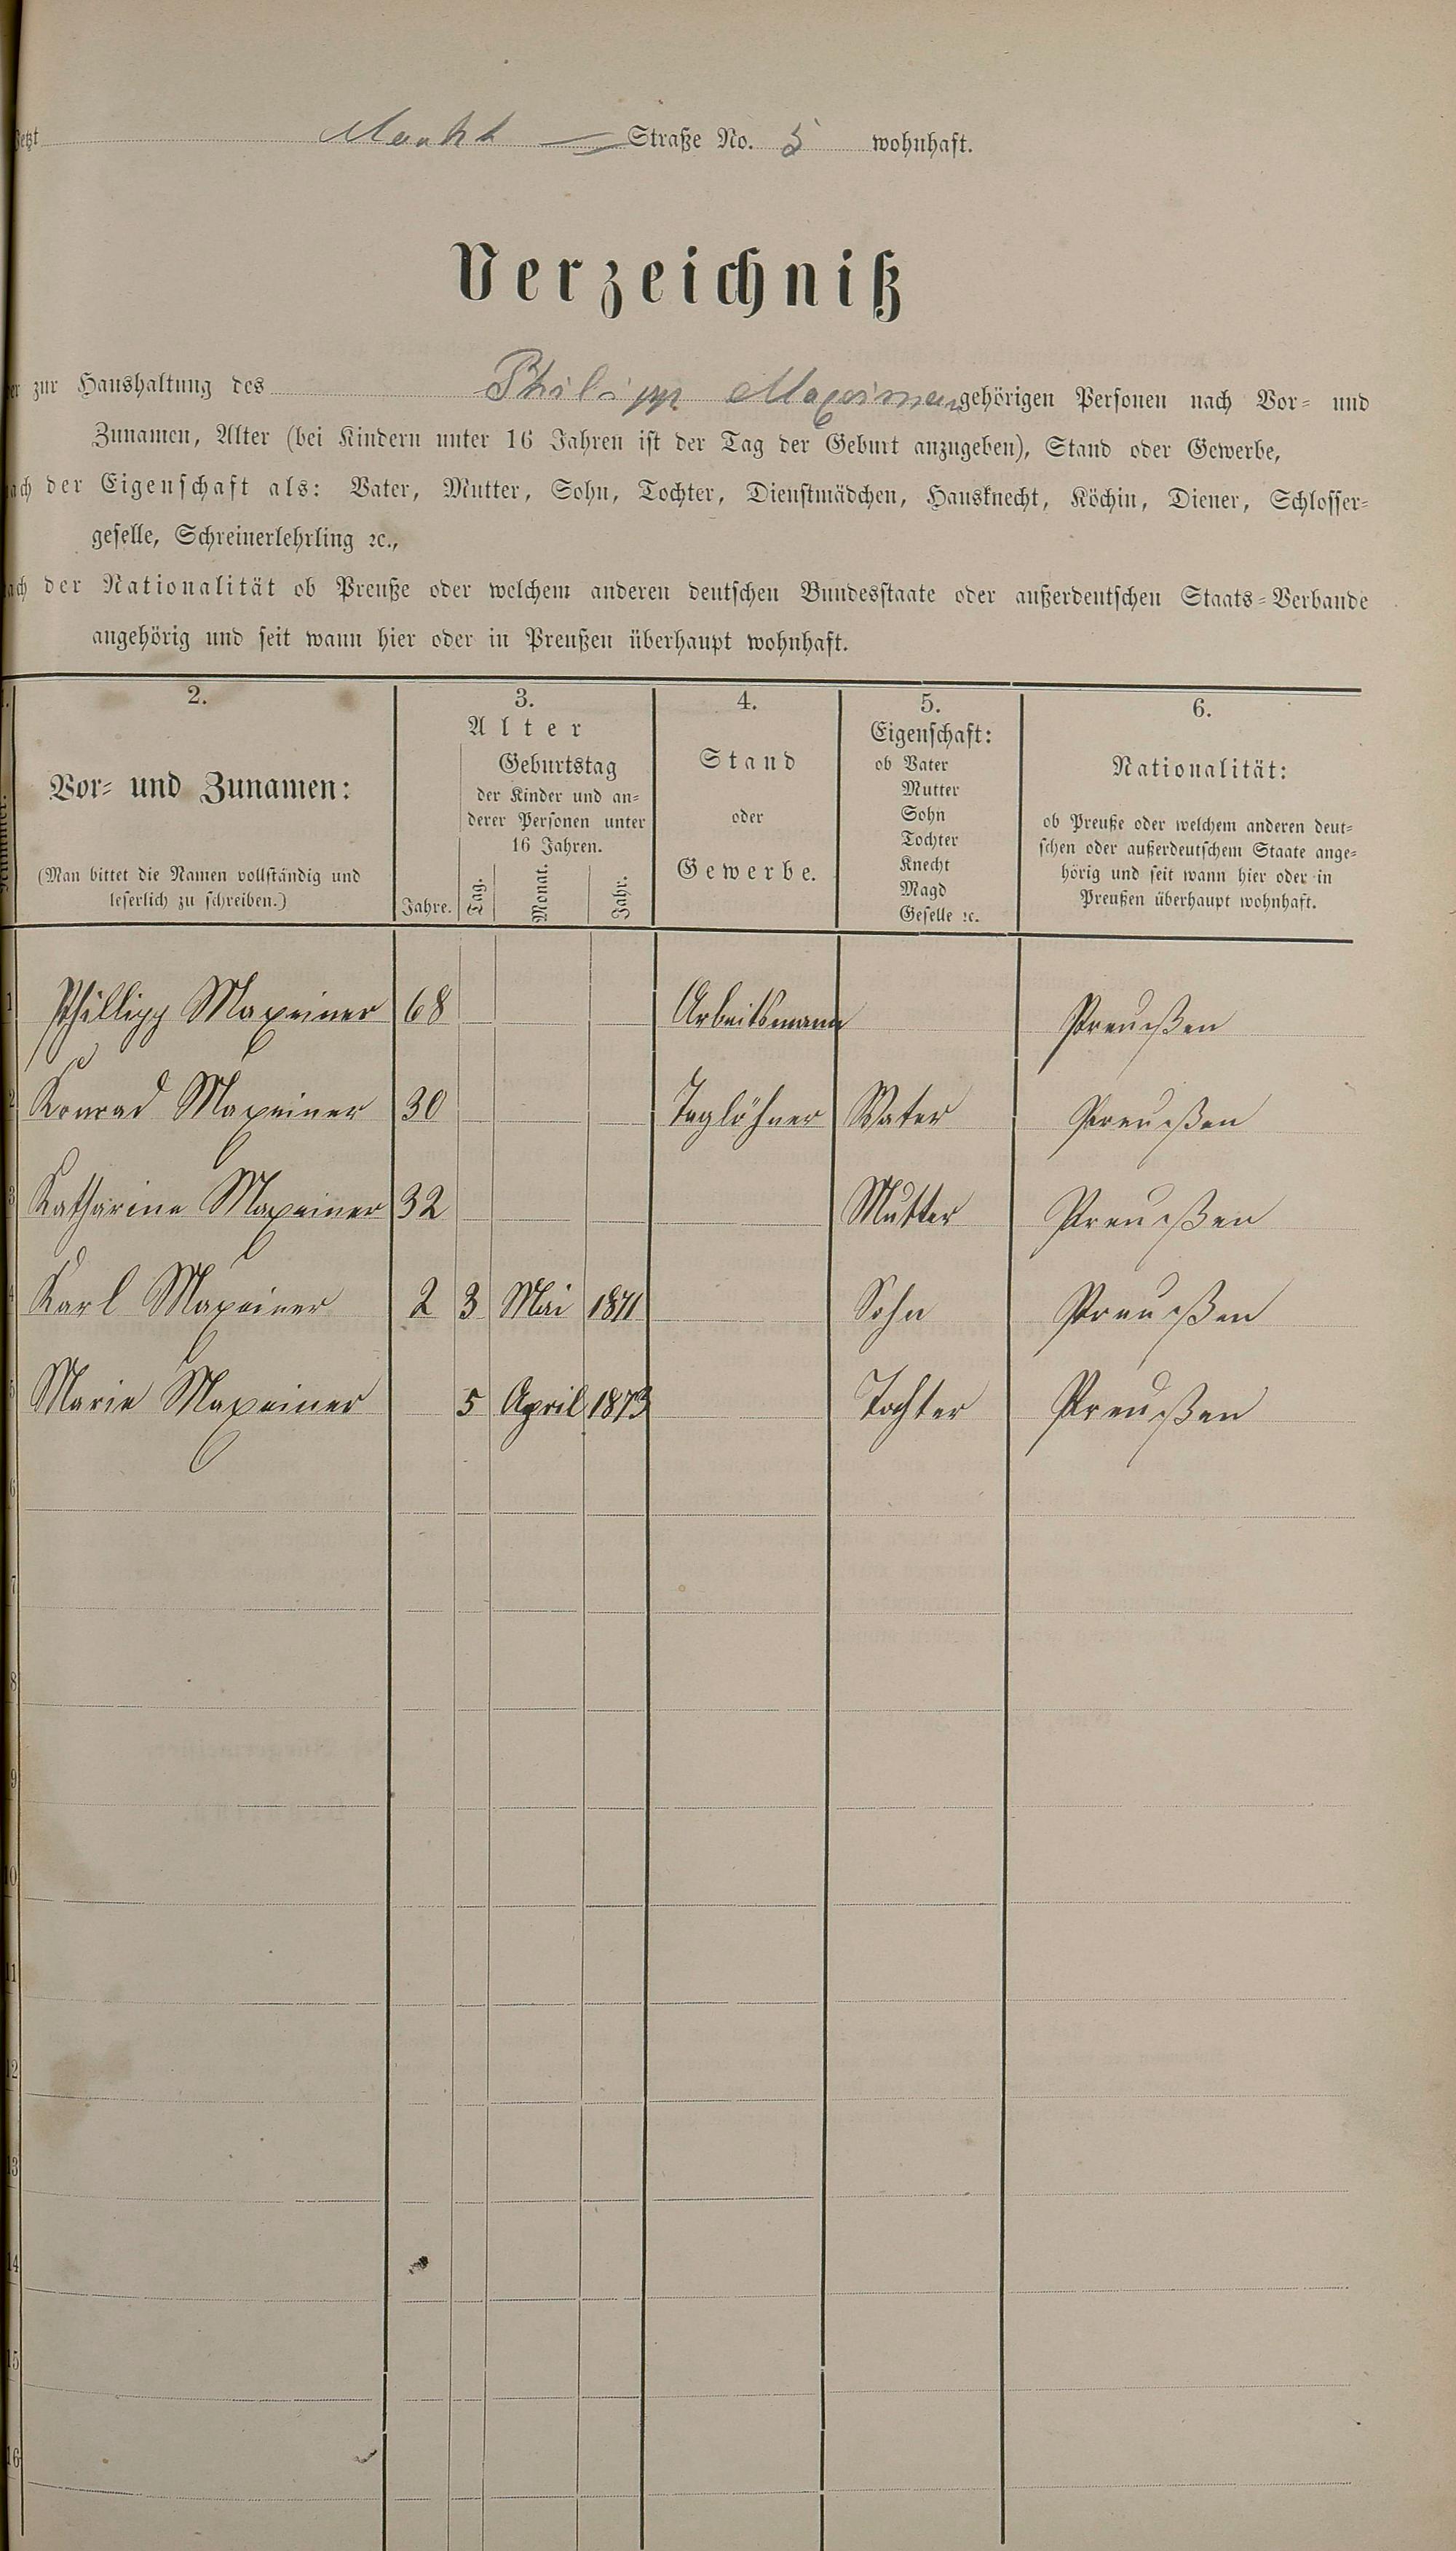 Jetzt Markt Straße No. 5 wohnhaft.
Verzeichniß
der zur Haushaltung des Philipp Maxeiner gehörigen Personen nach Vor- und
Zunamen, Alter (bei Kindern unter 16 Jahren ist der Tag der Geburt anzugeben), Stand oder Gewerbe,
nach der Eigenschaft als: Vater, Mutter, Sohn, Tochter, Dienstmädchen, Hausknecht, Köchin, Diener, Schlosser-
geselle, Schreinerlehrling ꝛc.,
nach der Nationalität ob Preuße oder welchem anderen deutschen Bundesstaate oder außerdeutschen Staats-Verbande
angehörig und seit wann hier oder in Preußen überhaupt wohnhaft.
1. 2. 3. 4. 5. 6.
Nummer.
Vor- und Zunamen:
(Man bittet die Namen vollständig und
leserlich zu schreiben.)
Alter
Geburtstag
der Kinder und an-
derer Personen unter
16 Jahren.
Jahre. Tag. Monat. Jahr.
Stand
oder
Gewerbe.
Eigenschaft:
ob Vater
Mutter
Sohn
Tochter
Knecht
Magd
Geselle ꝛc.
Nationalität:
ob Preuße oder welchem anderen deut-
schen oder außerdeutschem Staate ange-
hörig und seit wann hier oder in
Preußen überhaupt wohnhaft.
1 Phillipp Maxeiner 68 Arbeitsmann Preußen
2 Konrad Maxeiner 30 Taglöhner Vater Preußen
3 Katharina Maxeiner 32 Mutter Preußen
4 Karl Maxeiner 2 3 Mai 1871 Sohn Preußen
5 Marie Maxeiner 5 April 1873 Tochter Preußen
6
7
8
9
10
11
12
13
14
15
16